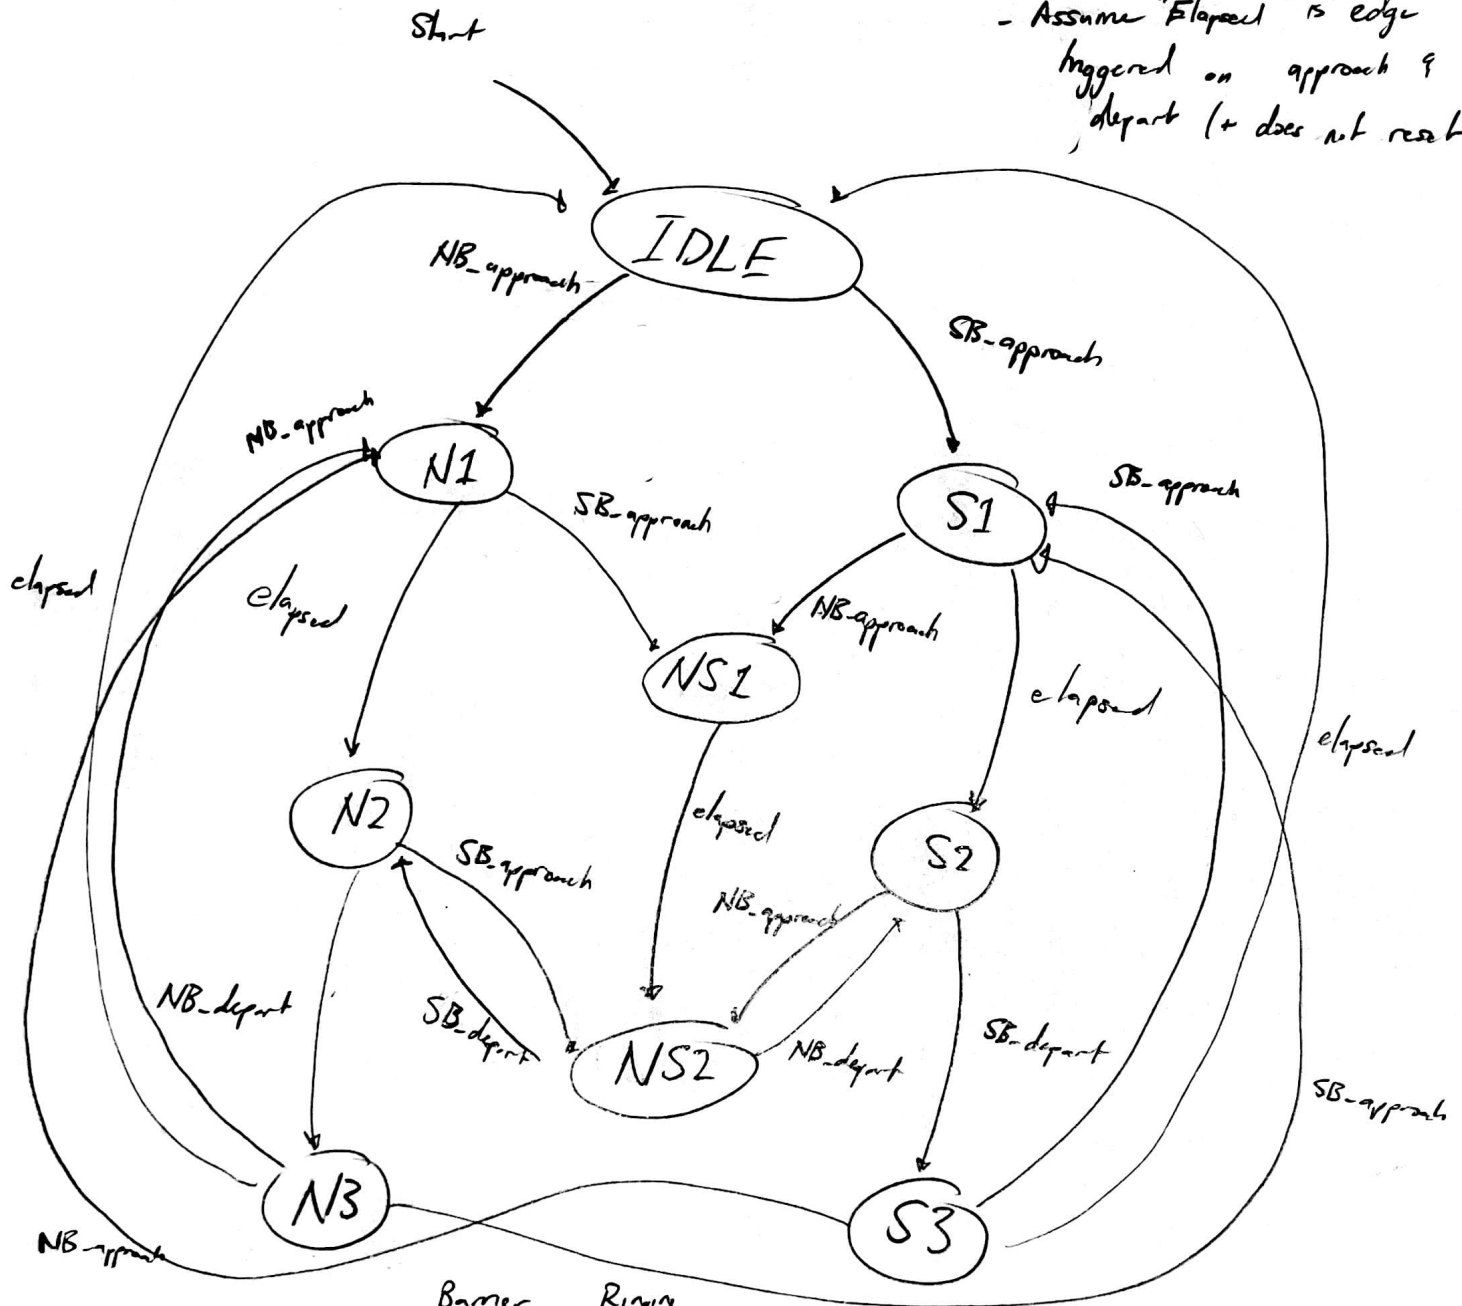 Start
- Assume Elapsed is edge
triggered on approach &
depart (+ does not reset
IDLE
NB_approach
SB_approach
NB_approach
N1
SB_approach
S1
SB_approach
elapsed
elapsed
NB_approach
NS1
elapsed
elapsed
N2
elapsed
S2
SB_approach
NB_approach
NB_depart
SB_depart
NS2
NB_depart
SB_depart
SB_approach
N3
S3
NB_approach
Barrier